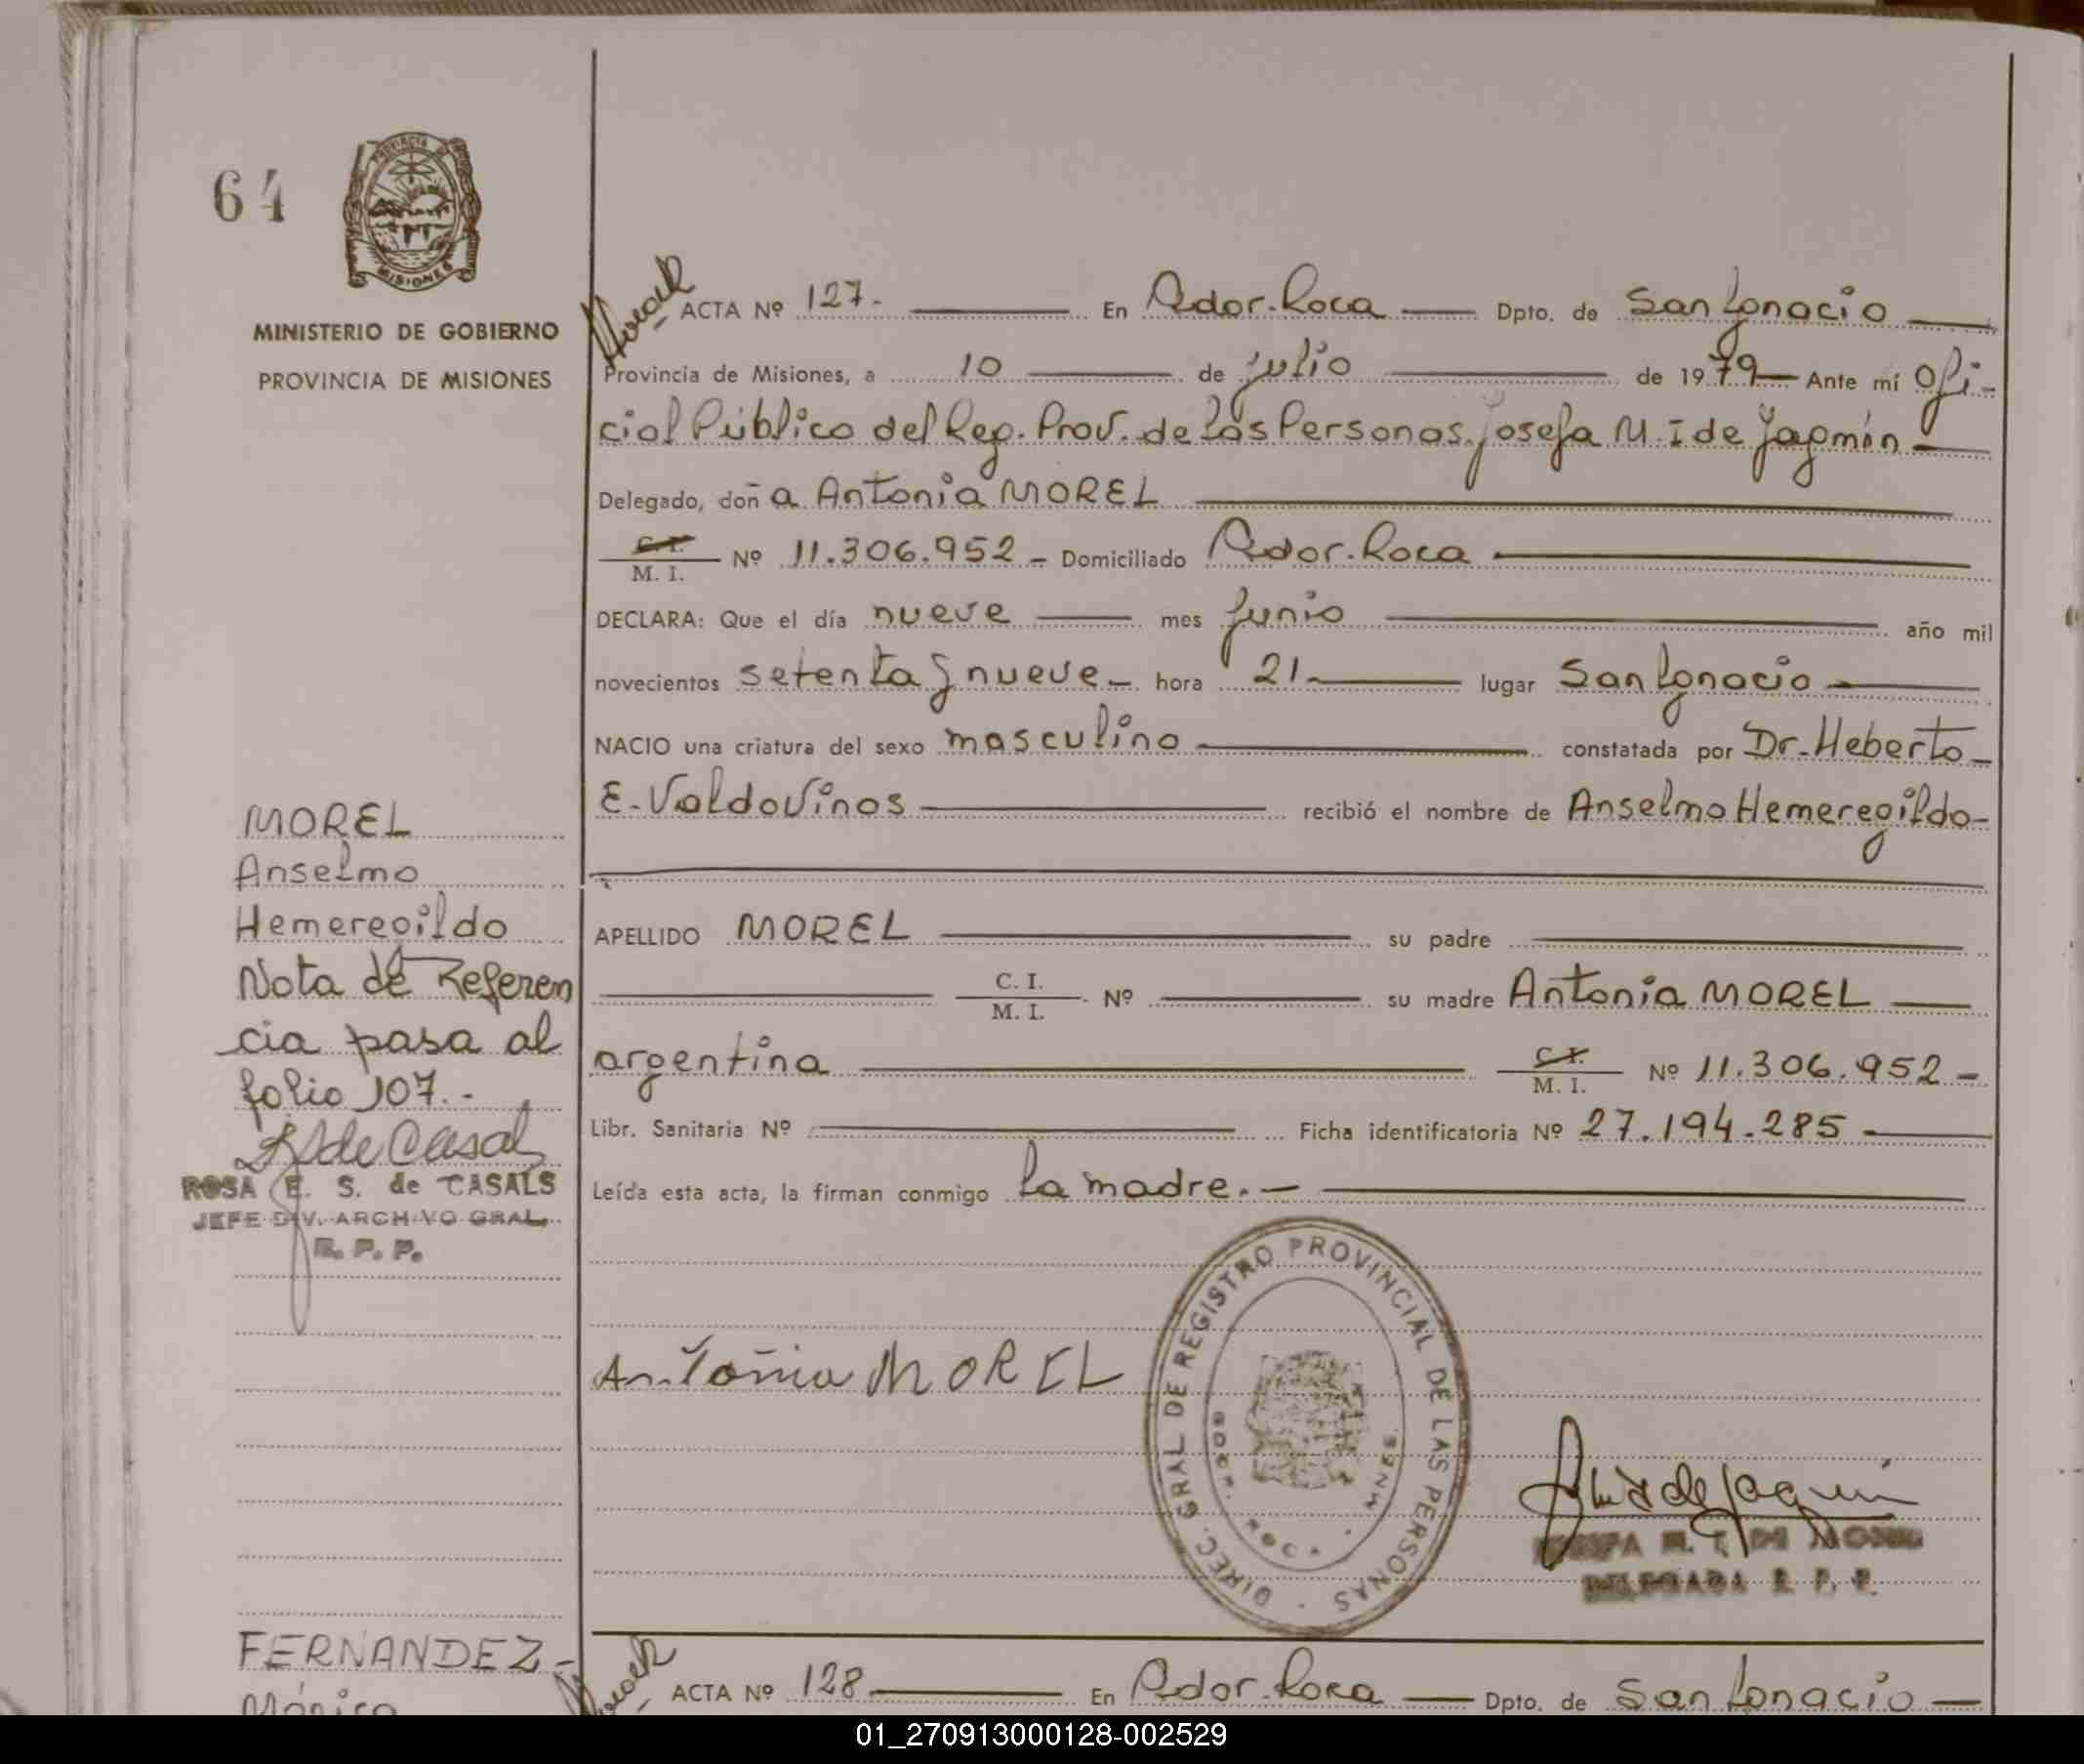 64
PROVINCIA
MISIONES
MINISTERIO DE GOBIERNO
PROVINCIA DE MISIONES
ACTA Nº 127.- En Gdor. Roca Dpto. de San Ignacio
Provincia de Misiones, a 10 de julio de 1979 Ante mí Ofi-
cial Público del Reg. Prov. de las Personas, Josefa M. I de Jagmín
Delegado, doña Antonia MOREL
C. I.
M. I. Nº 11.306.952 - Domiciliado Gdor. Roca
DECLARA: Que el día nueve mes Junio año mil
novecientos setenta y nueve - hora 21 lugar San Ignacio
NACIO una criatura del sexo masculino constatada por Dr. Heberto
E. Valdovinos recibió el nombre de Anselmo Hemeregildo-
MOREL
Anselmo
Hemeregildo
Nota de Referen
cia pasa al
folio 107.-
ROSA E. S. de CASALS
JEFE DIV. ARCHIVO GRAL.
R. P. P.
APELLIDO MOREL su padre
C. I.
M. I. Nº su madre Antonia MOREL
argentina C. I.
M. I. Nº 11.306.952 -
Libr. Sanitaria Nº Ficha identificatoria Nº 27.194.285
Leída esta acta, la firman conmigo la madre.-
DIREC. GRAL DE REGISTRO PROVINCIAL DE LAS PERSONAS
GDOR. ROCA MNES.
Antonia MOREL
DELEGADA R. P. P.
FERNANDEZ-
Mónica
ACTA Nº 128 En Gdor. Roca Dpto. de San Ignacio
01_270913000128-002529